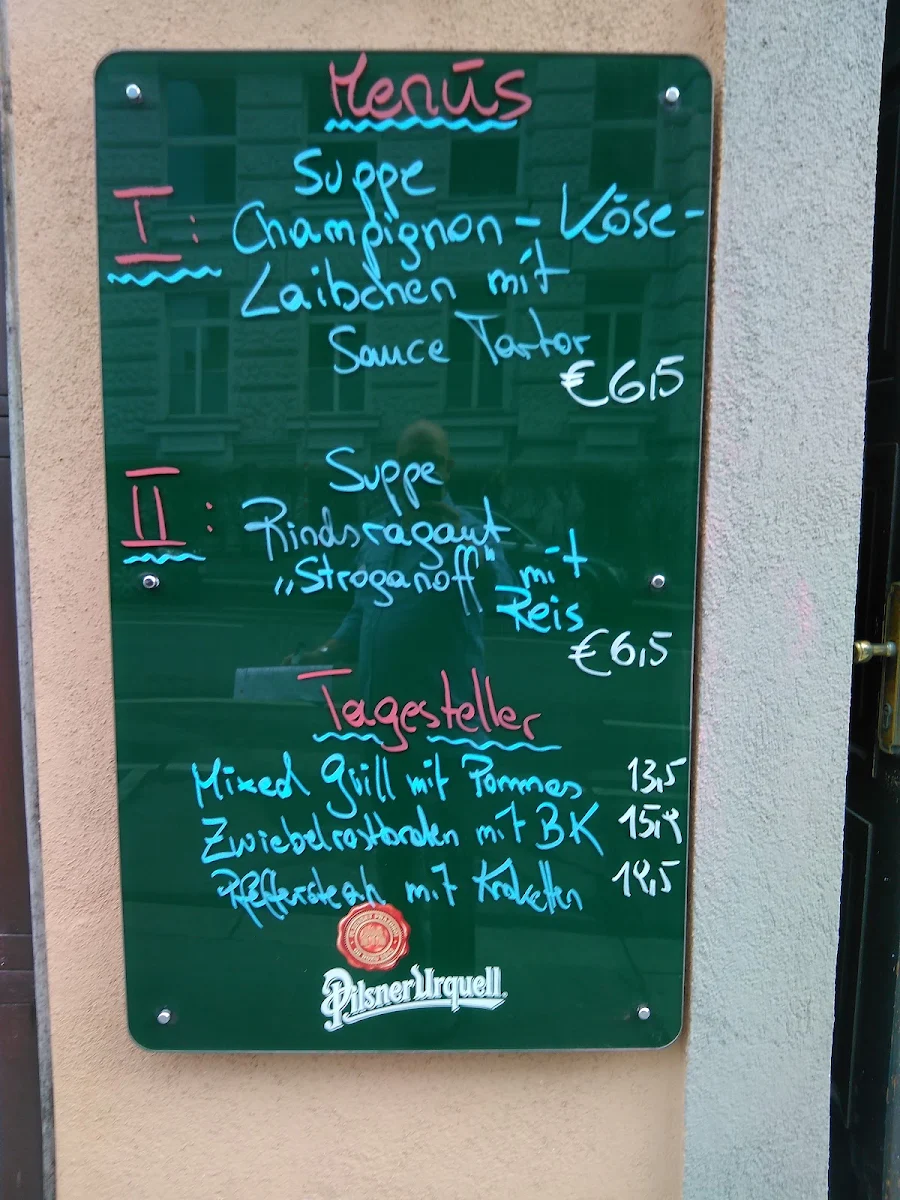 Menüs
Suppe
I: Champignon-Käse-
Laibchen mit
Sauce Tartar
€6,5
Suppe
II: Rindsragout
„Stroganoff" mit
Reis
€6,5
Tagesteller
Mixed Grill mit Pommes 13,5
Zwiebelrostbraten mit BK 15,9
Pfeffersteak mit Kroketten 19,5
Pilsner Urquell